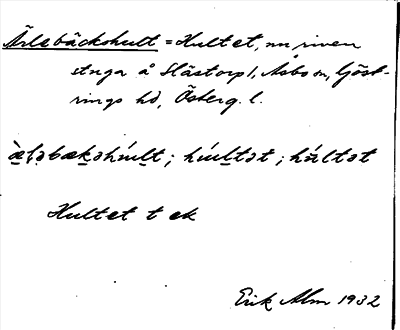 Ärlebäckshult = Hultet, nu riven
stuga å Slästorp 1, Åsbo sn, Göst-
rings hd, Österg. l.
æ̀l̥əbækəhúult; húultət; húltət
Hultet t ek
Erik Alm 1932